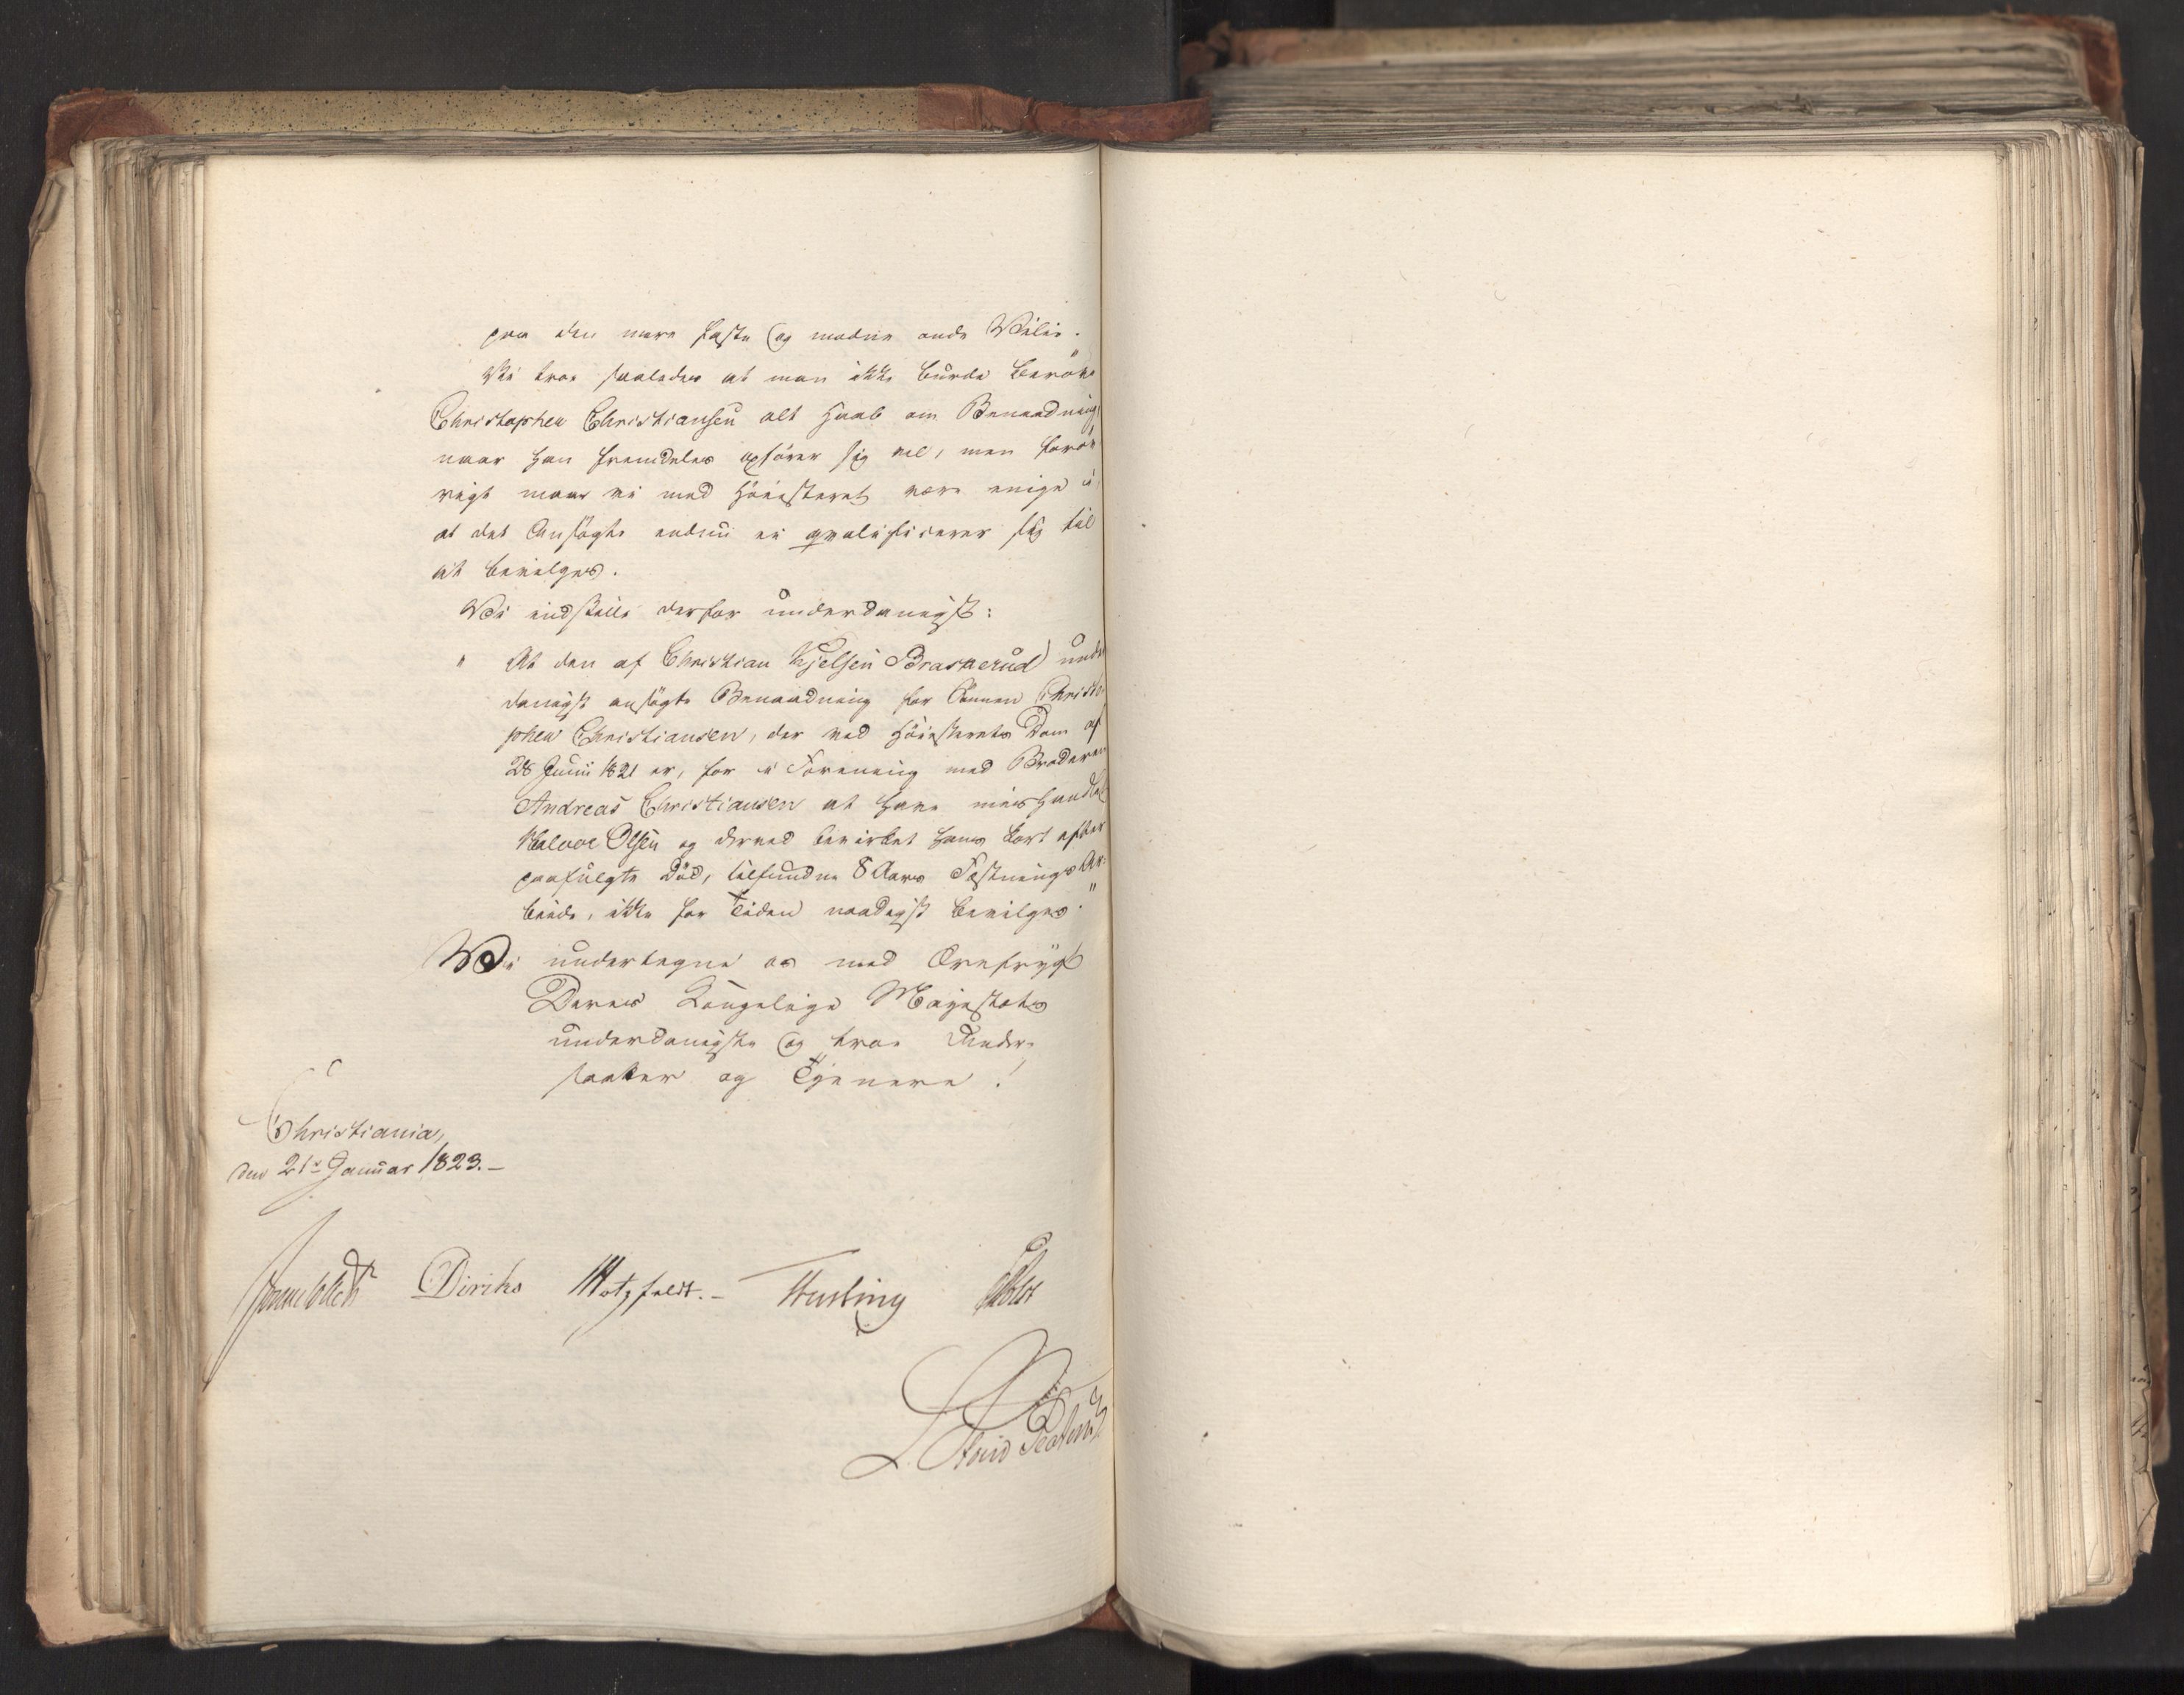 paa den mere faste og modne onde Villie.
Vi troe saaledes at man ikke burde berøve
Christopher Christiansen alt Haab om Benaadning,
naar han fremdeles opfører sig vel, men forøv
rigt maae vi med Høiesteret være enige i,
at det Ansøgte endnu ei qvalificerer sig til
at bevilges.
Vi indstille derfor underdanigst:
" At den af Christian Kjelsen Braskerud under
danigst ansøgte Benaadning for Sønnen Christo
pher Christiansen, der ved Høiesterets Dom af
28 Junii 1821 er, for i Forening med Broderen
Andreas Christiansen at have mishandlet
Halvor Olsen og derved bevirket hans kort efter
paafulgte Død, tilfunden 8 Aars Fæstnings Ar-
beide, ikke for Tiden naadigst bevilges."
Vi undertegne os med Ærefrygt
Deres Kongelige Majestæts
underdanigste og troe Under-
saatter og Tjenere!
Christiania,
den 21de Januar 1823.-
Sommerhielm Diriks Motzfeldt.- Krebs